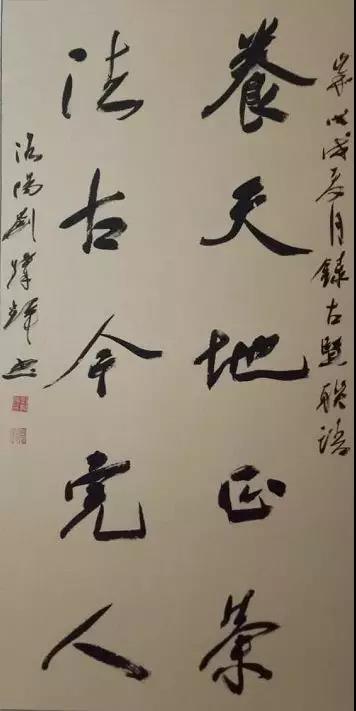 歲次戊戌月錄古賢聯語
養天地正氣
法古今完人
陽劉輝書